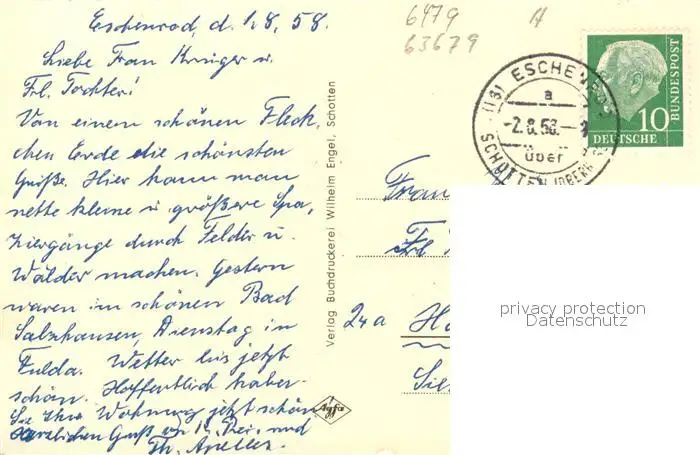 Eschenrod, d. 1.8.58.
Liebe Frau Krüger u.
Frl. Tochter!
Von einem schönen Fleck,
chen Erde die schönsten
Grüße. Hier kann man
nette kleine u. größere Spa,
ziergänge durch Felder u.
Wälder machen. Gestern
waren im schönen Bad
Salzhausen, Dienstag in
Fulda. Wetter bis jetzt
schön. Hoffentlich haben
Sie Ihre Wohnung jetzt schön
Herzlichen Gruß und
Th. Apelles
Verlag Buchdruckerei Wilhelm Engel, Schotten
Agfa
6479
63679
(16) ESCHENROD
a
-2.8.58.-
über
SCHOTTEN (OBERH
10
DEUTSCHE
BUNDESPOST
Frau
Frl
24a
privacy protection
Datenschutz